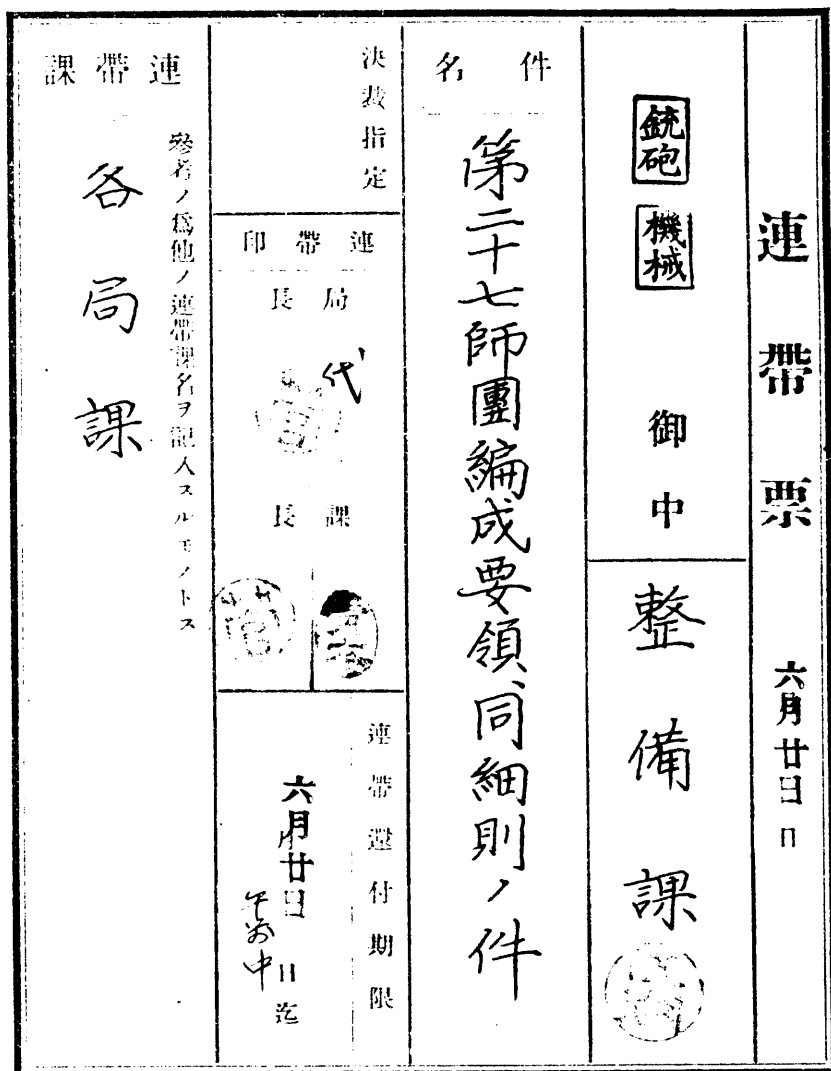 連帶票
六月廿日 日
銃砲
機械
御中
整備課
件名
第二十七師團編成要領、同細則ノ件
決裁指定
連帶印
局長
代
課長
連帶還付期限
六月廿日 日迄
午前中
連帶課
參考ノ爲他ノ連帶課名ヲ記入スルモノトス
各局課